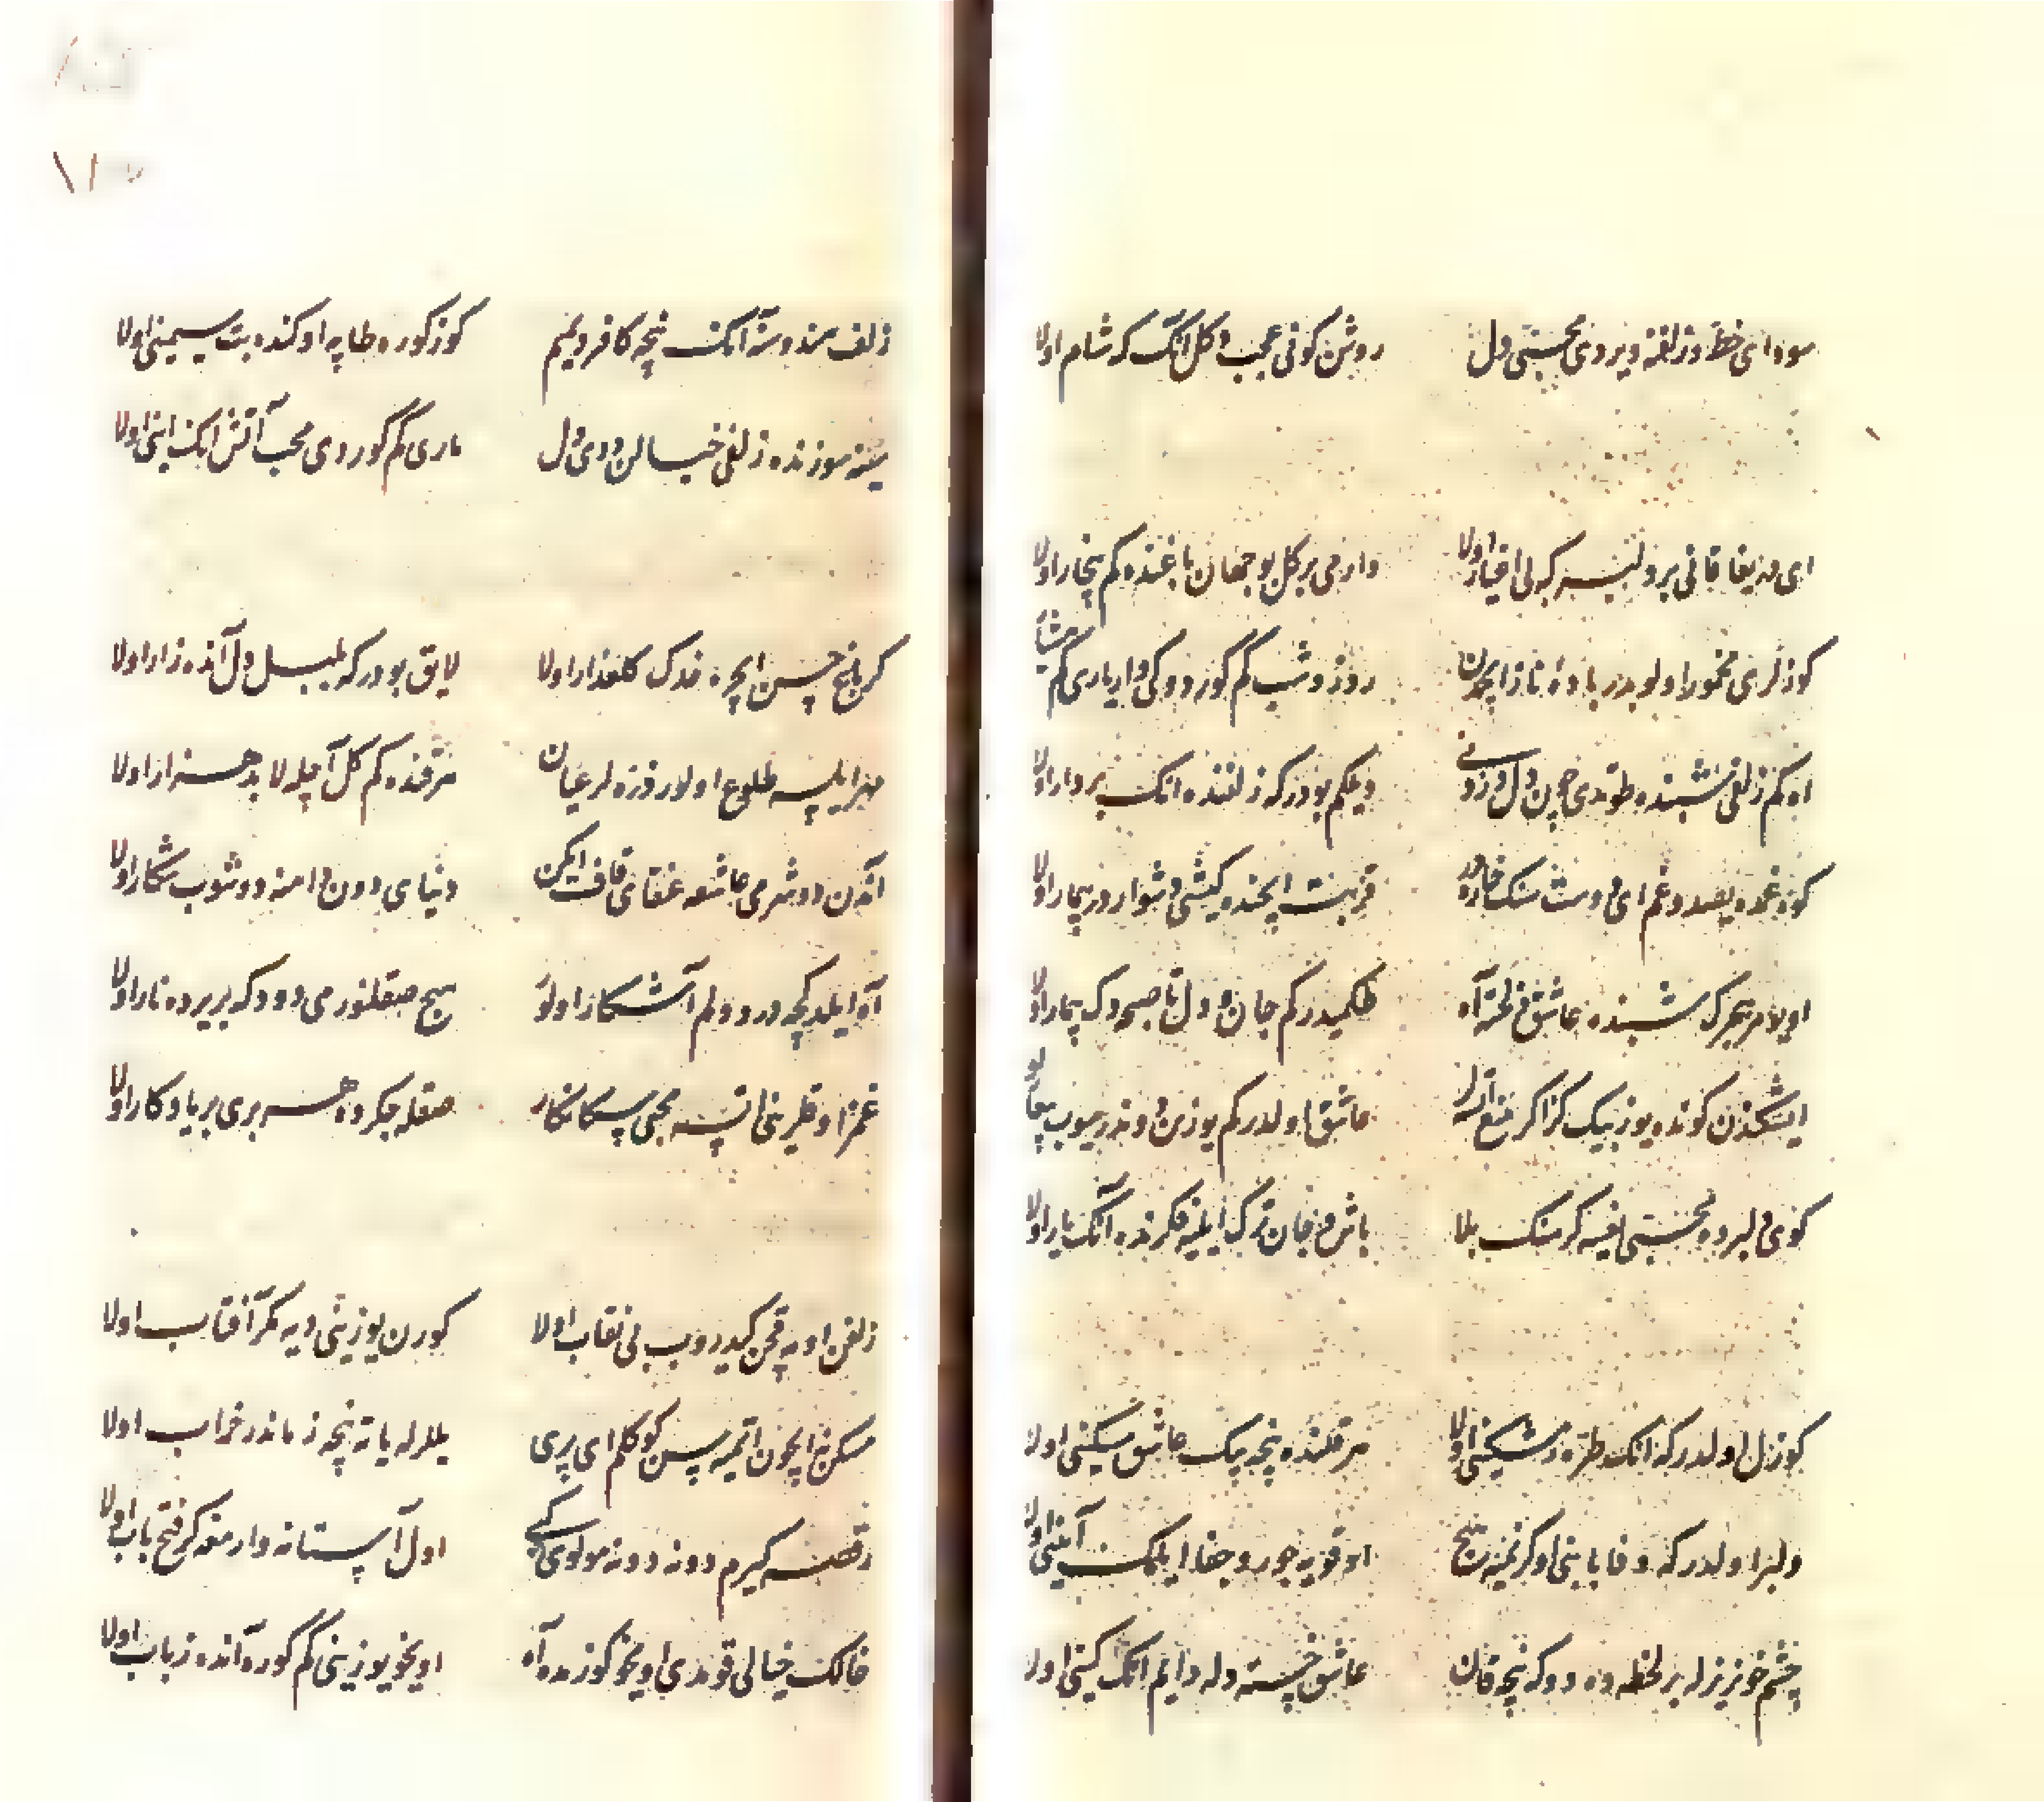 سودای خط و زلفنه ویردی محبتی دل    روشن کونی عجب دکل انک که شام اولا
ای مه یقا قانی بر دلبسه که بی اغیار اولا    وار می بر کل بو جهان باغنده کم بیخار اولا
کوزلری مخمور اولوبدر باده ناز ایچمدن    روز و شب کم گوردوکی وار یاری کم
اوکم زلفی شبنده طوتدی چون دل دزدنی    دیلکم بودر که زلفنده انک بردار اولا
کوی غمده یصدوغم ای دوست سنک خاره در    غربت ایچنده کیشی دشوار در بیمار اولا
اولامر هجرک شبنده عاشق دلخسته آه    ظلمیدر کم جان و دل تا صبحدک بیمار اولا
ایشکندن کونده یوز بیک کز اکر منع اتسه لر    عاشق اولدر کم یوزین دوندرمیوب
کوی دلبرده محبتی لغیسه کر سنک بلا    باش و جان ترک ایلیه فکرنده انک یار اولا
کوزل اولدر که انک طره مشکینی اولا    هر قلنده نیجه بیک عاشق مسکینی اولا
دلبر اولدر که وفا بابنی اوکرنمیه هیچ    اوقویه جور و جفا ایلمک آیینی اولا
چشم خونریزله بر لحظه ده دوکه نیجه قان    عاشق خسته دله دایم انک کینی اولا
زلف هندوسنه انک نیجه کافر دیمیم    کوز کوره طاپه اوکنده بت سیمینی اولا
سینه سوزنده زلفی خیالن ددی دل    ماری کم گوردی محب آتش انک اینی اولا
کر باغ حسن ایچره قدک کلعذار اولا    لایق بودر که بلبل دل آنده زار اولا
مهر ایلسه طلوع اولور ذره لر عیان    هر قنده کم کل آچلا بد هزار اولا
اندن دوشرمی عاشقه عنقای قاف ایکن    دنیای دون دامنه دوشوب شکار اولا
آه ایلدکجه درد دلم آشکار اولور    هیچ صقلنورمی دود که بر یرده نار اولا
غمزه اوقلرینی اتسه محبی سکا نکار    صقله جکرده هر بری بر یادکار اولا
زلفن اویه قچن کیدروب بی نقاب اولا    کورن یوزینی دیه مکر آفتاب اولا
مسکن ایچون اتمیه سن کوکلم ای پری    یللرله یاته نیجه زماندر خراب اولا
رقصه کیرم دونه دونه مولوی کبی    اول آستانه وارمغه کر فتح باب اولا
خالک خیالی قوندی اویخو کوزمده آه    اویخو یوزینی کم گوره آنده ذباب اولا